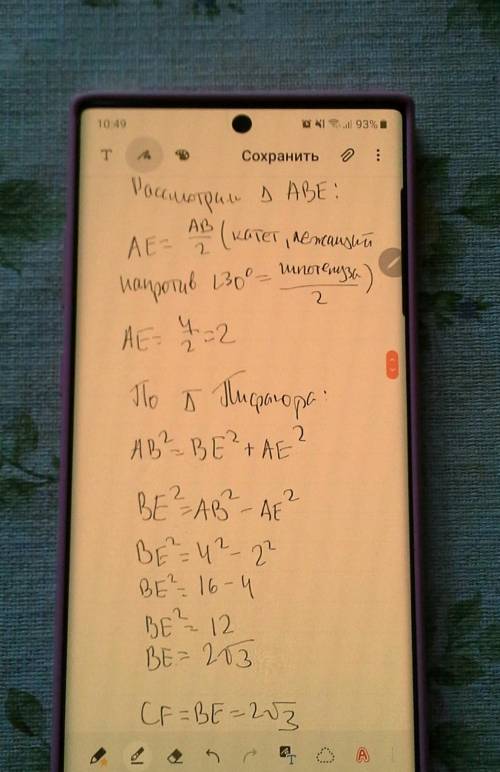 10:49 93%
T Сохранить
Рассмотрим Δ ABE:
AE = AB/2 (катет, лежащий
напротив ∠30° = гипотенуза/2)
AE = 4/2 = 2
По Δ Пифагора:
AB² = BE² + AE²
BE² = AB² - AE²
BE² = 4² - 2²
BE² = 16 - 4
BE² = 12
BE = 2√3
CF = BE = 2√3
T A